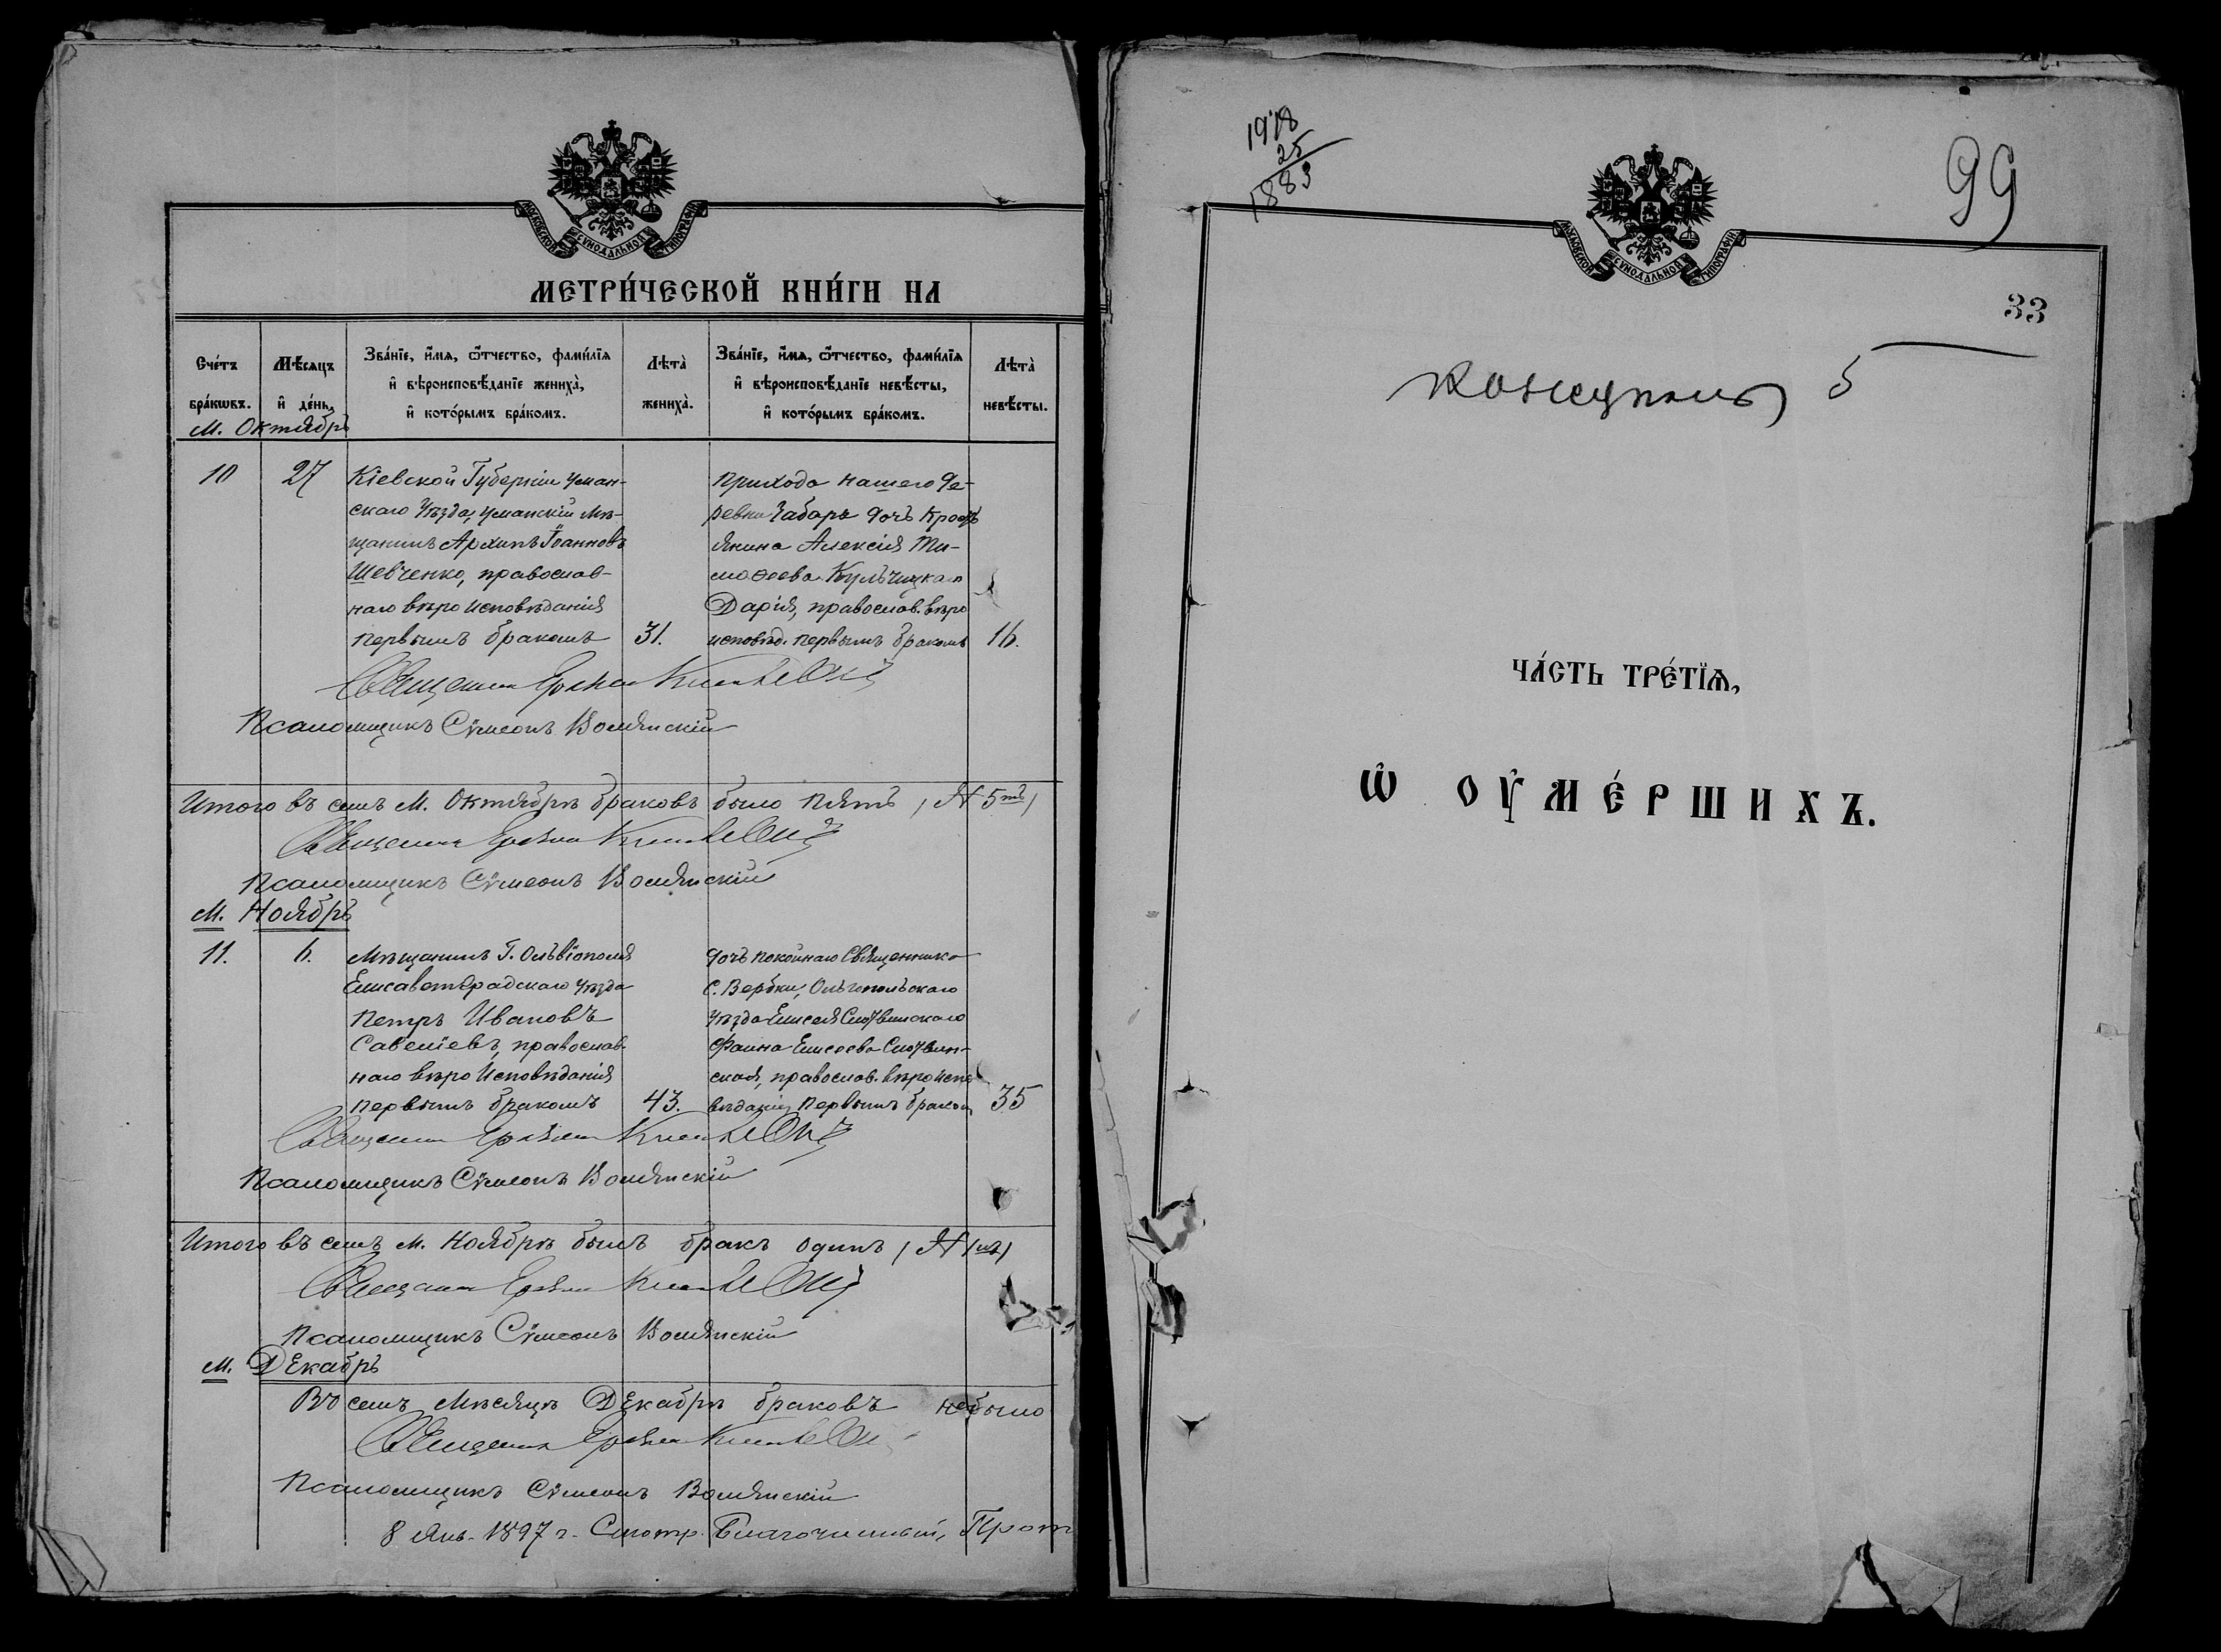 МОСКОВСКОЙ СѴНОДАЛЬНОЙ ТИПОГРАФІИ
МЕТРИ́ЧЕСКОЙ КНИ́ГИ НА
Сче́тъ бра́кѡвъ.
Мѣ́сяцъ и҆ де́нь.
Зва́нїе, и҆́мѧ, ѻ҆́тчество, фами́лїѧ
и҆ вѣроисповѣ́данїе жениха̀,
и҆ кото́рымъ бра́комъ.
Лѣта̀ жениха̀.
Зва́нїе, и҆́мѧ, ѻ҆́тчество, фами́лїѧ
и҆ вѣроисповѣ́данїе невѣ́сты,
и҆ кото́рымъ бра́комъ.
Лѣта̀ невѣ́сты.
М. Октябрь
10
27
Кіевской Губерніи Уман-
скаго Уѣзда, Уманскій Мѣ-
щанинъ Архипъ Іоанновъ
Шевченко, православ-
наго вѣроисповѣданія
первымъ бракомъ
31.
Прихода нашего де-
ревни Чабаръ дочь Крест
янина Алексія Ти-
моѳеева Кульчицкаго
Дарія, православ. вѣро
исповѣд. первымъ бракомъ
16.
Священник
Псаломщикъ Сѵмеонъ Волянскій
Итого въ семъ М. Октябрѣ браковъ было пять / № 5ть /
Священник
Псаломщикъ Сѵмеонъ Волянскій
М. Ноябрь
11.
6.
Мѣщанинъ Г. Ольвіополя
Елисаветградскаго Уѣзда
Петръ Ивановъ
Савеліевъ, православ-
наго вѣроисповѣданія
первымъ бракомъ
43.
дочь покойнаго Священника
С. Вербки, Ольгопольскаго
Уѣзда Елисея
Фаина Елисеева
ская, православ. вѣроиспо
вѣданія первымъ браком
35
Священник
Псаломщикъ Сѵмеонъ Волянскій
Итого въ семъ М. Ноябрѣ былъ бракъ одинъ / № 1нъ /
Священник
Псаломщикъ Сѵмеонъ Волянскій
М. Декабрь
Въ семъ Мѣсяцѣ Декабрѣ браковъ небыло
Священник
Псаломщикъ Сѵмеонъ Волянскій
8 Янв. 1897 г. Смотр. Благочинный, Прот
1918
25
1883
99
МОСКОВСКОЙ СѴНОДАЛЬНОЙ ТИПОГРАФІИ
33
5
ЧА́СТЬ ТРЕ́ТЇѦ,
Ѡ҆ ОУ҆МЕ́РШИХЪ.